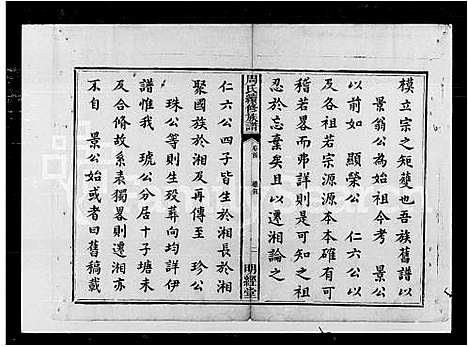 模立宗之矩矱也吾族舊譜以
景翁公為始祖今考 景公
以前如 顯榮公 仁六公以
及各祖若宗源源本本確有可
稽若附而弗詳則是可知之祖
忍於忘棄矣且以遷湘論之
周氏續修族譜
卷首
二
明經堂
仁六公四子皆生於湘長於湘
聚國族於湘及再傳至 珍公
珠公等則生歿葬向均詳伊
譜惟我 琥公分居十子塘未
及合脩故系表獨畧則遷湘亦
不自 景公始或者曰舊稿載